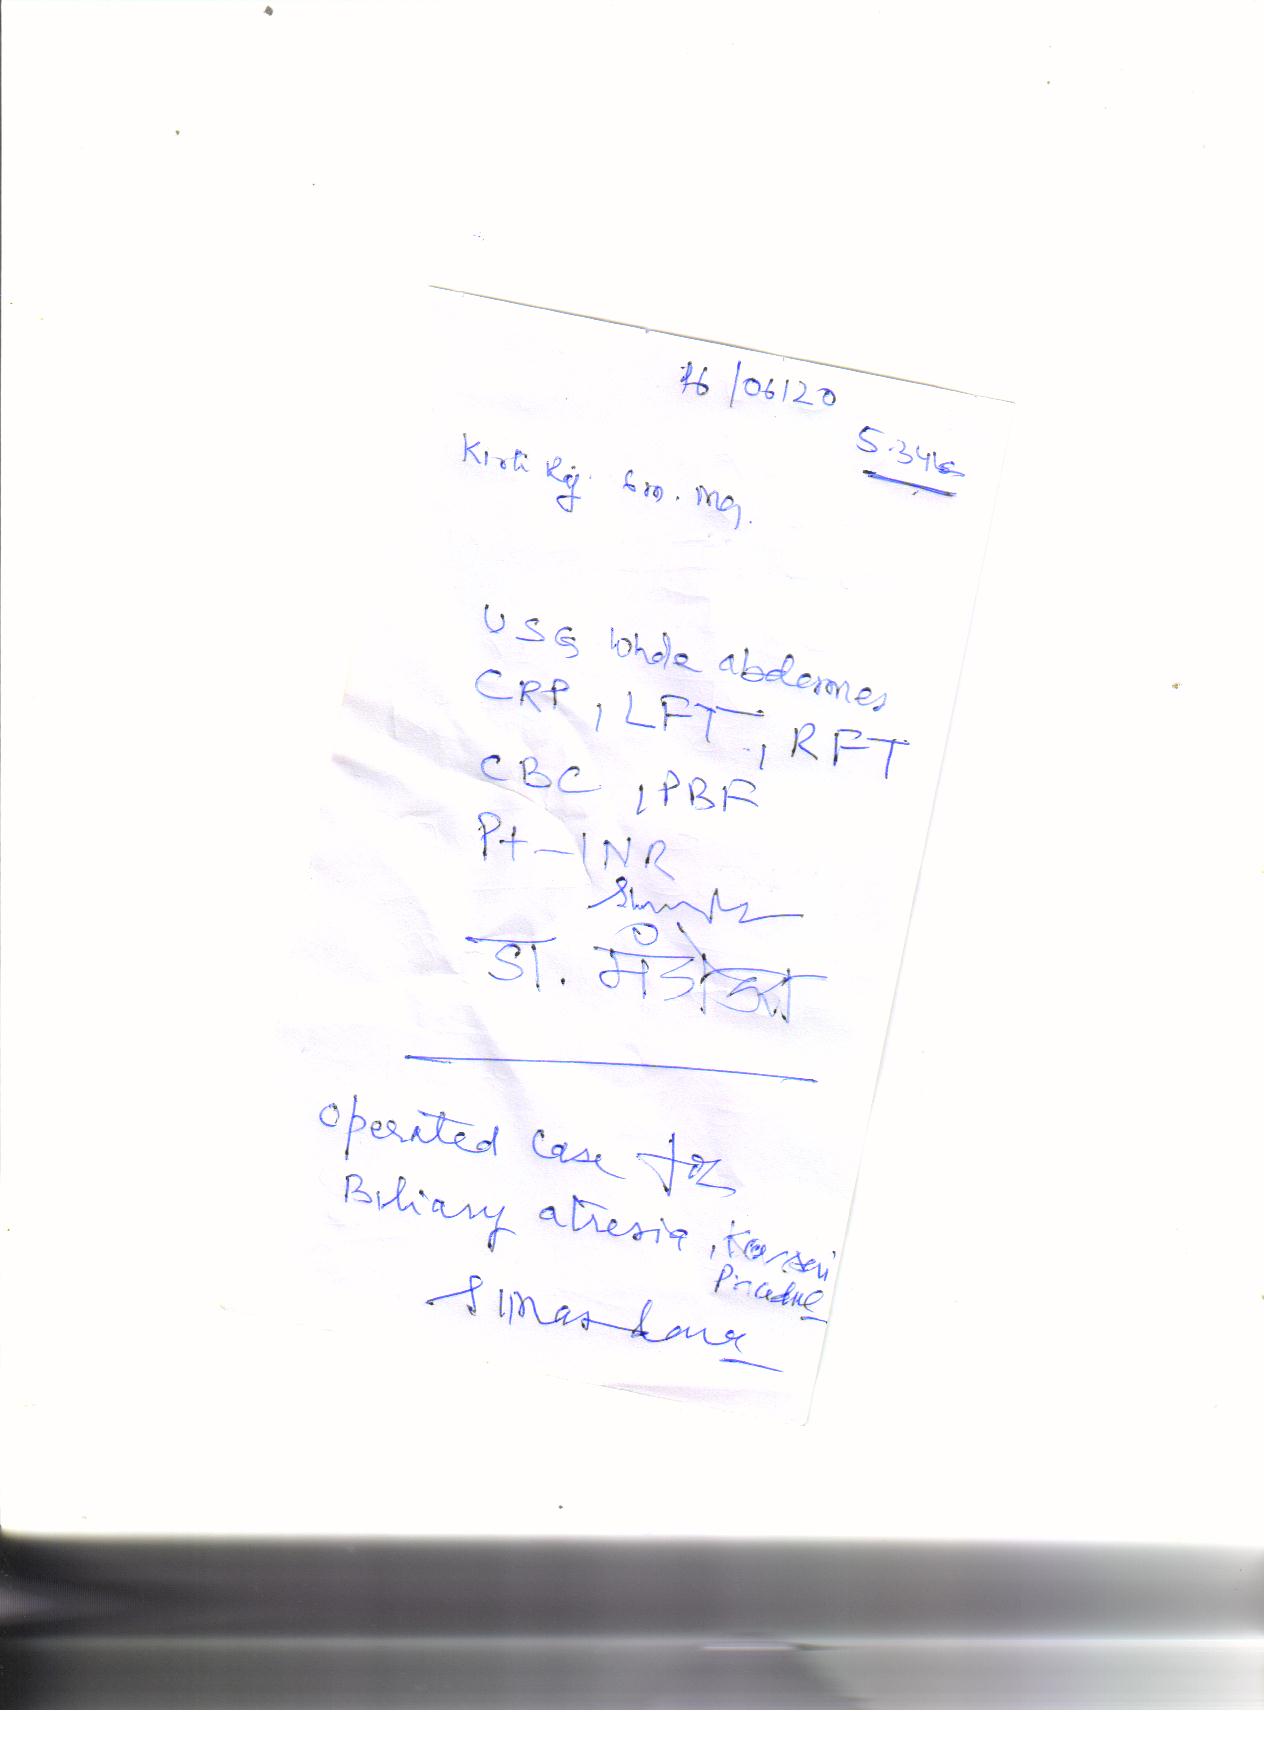 16/06/20
5.34
Kirti
USG whole abdomen
CRP, LFT, RFT
CBC, PBF
Pt-INR
डॉ.
Operated case for
Biliary atresia, Kassai